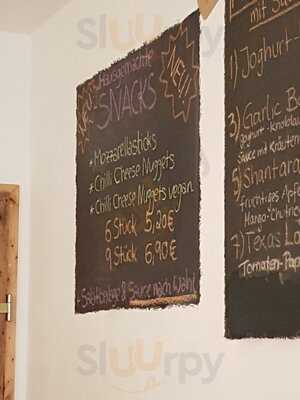 Sluurpy
Hausgemachte
SNACKS
NEU!!
* Mozzarellasticks
* Chilli Cheese Nuggets
* Chilli Cheese Nuggets vegan
6 Stück 5,20€
9 Stück 6,90€
+ Salatbeilage & Sauce nach Wahl
mit
1) Joghurt-
3) Garlic
Joghurt-
Sauce mit Kräuter
5) Shantara
fruchtiges
Mango-
7) Texas
Tomaten-
Sluurpy